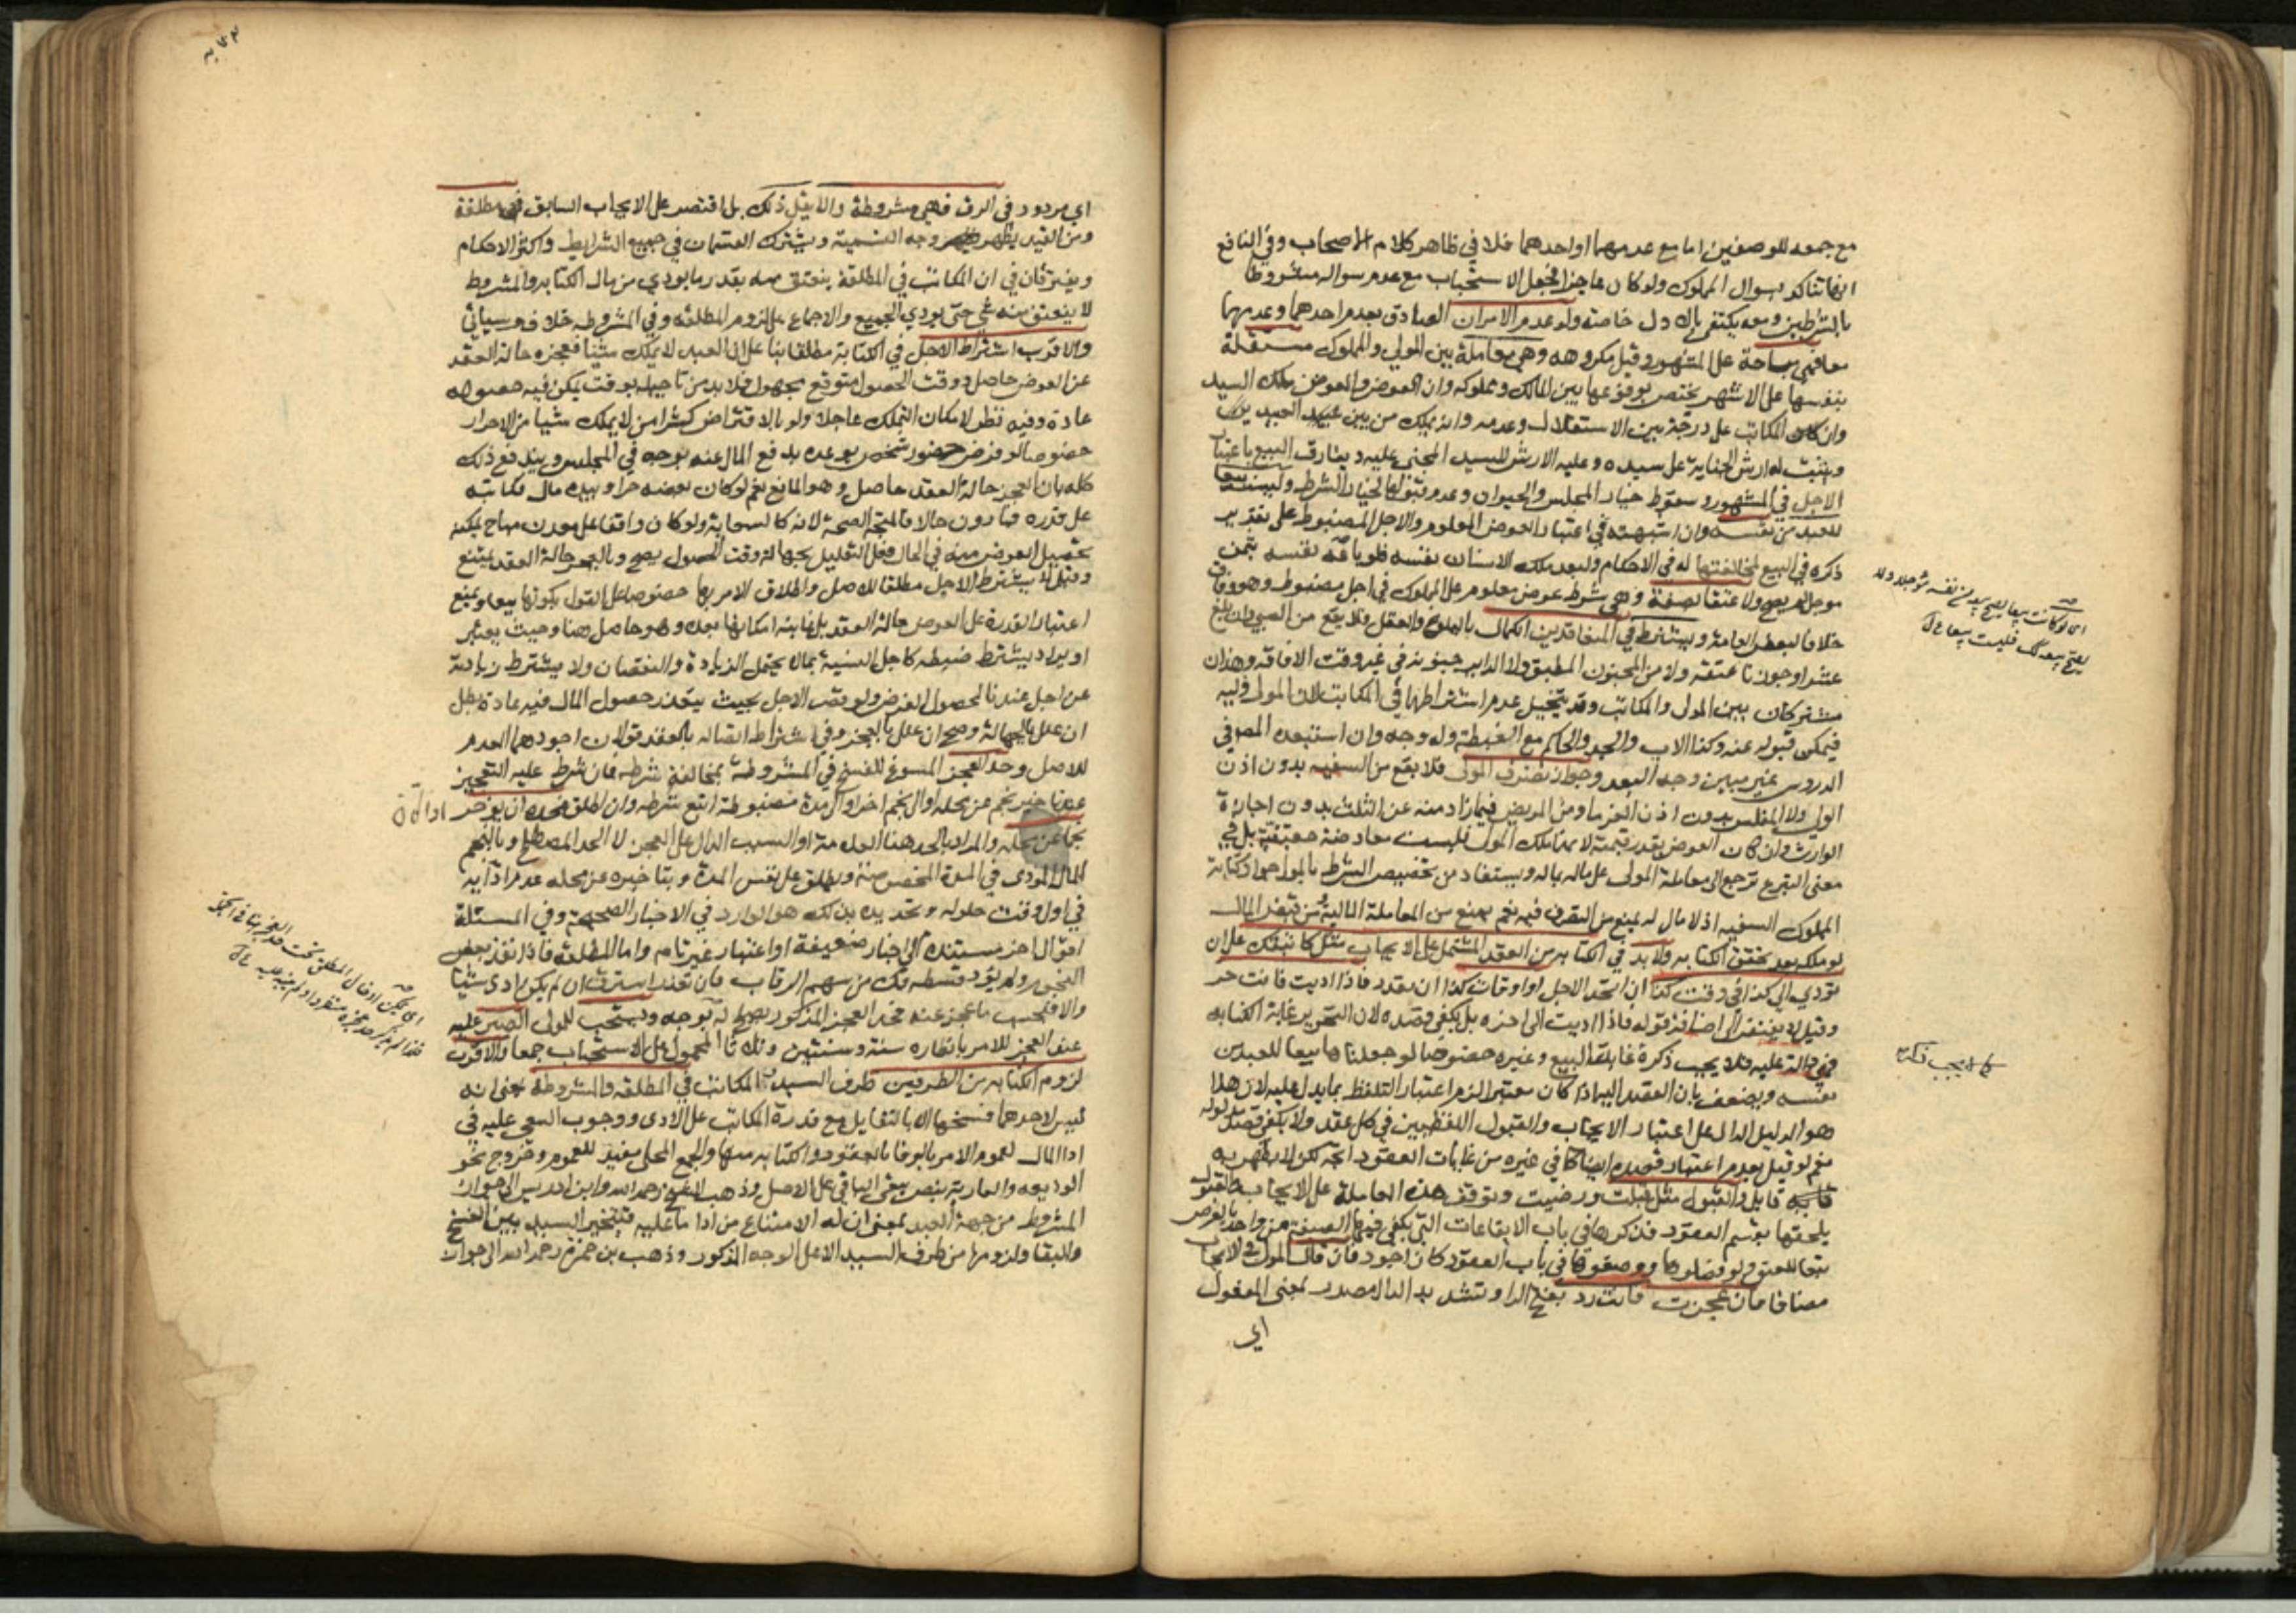 مع جمعه للوصفين اما مع عدمهما او احدهما فلا في ظاهر كلام الاصحاب وفي النافع
انها تتاكد بسوال المملوك ولو كان عاجزا فجعل الاستحباب مع عدم سواله مشروطا
بالشرطين ومعه يكتفى بالاول خاصة ولو عدم الامران الصادق بعدم احدهما وعدمهما
معا فهي مباحة على المشهور وقيل مكروهه وهي معاملة بين المولي والمملوك مستقلة
بنفسها على الاشهر يختص بوقوعها بين المالك ومملوكه وان العوض والمعوض ملك السيد
وان المكاتب على درجة بين الاستقلال وعدمه وانه يملك من بين العبيد
ويثبت له ارش الجناية على سيده وعليه الارش للسيد المجني عليه ويفارق البيع باعتبار
الاجل في المشهور وسقوط خيار المجلس والحيوان وعدم قبولها لخيار الشرط وليست بيعا
للعبد من نفسه وان اشبهته في اعتبار العوض المعلوم والاجل المضبوط على تقدير
ذكره في البيع لمخالفتها له في الاحكام ولبعد ملك الانسان نفسه فلو باعه نفسه بثمن
موجل لم يصح ولا عتقا بصفة وهي شرط عوض معلوم على المملوك في اجل مضبوط وهو وفاق
خلافا لبعض العامة ويشترط في المتعاقدين الكمال بالبلوغ والعقل فلا يقع من الصبي وان بلغ
عشرا وجوزنا عتقه ولا من المجنون المطبق ولا الداير جنونه في غير وقت الافاقه وهذان
مشتركان بين المولى والمكاتب وقد يتخيل عدم اشتراطهما في المكاتب لان المولى وليه
فيمكن قبوله عنه وكذا الاب والجد والحاكم مع الغبطة وله وجه وان استبعده المص في
الدروس غير مبين وجه البعد وجواز تصرف المولى فلا يقع من السفيه بدون اذن
الولي ولا المفلس بدون اذن الغرما ومن المريض فيما زاد منه عن الثلث بدون اجازة
الوارث وان كان العوض بقدر قيمته لانهما ملك المولى فليست معاوضة حقيقية بل في
معنى التبرع ترجع الى معاملة المولى على ماله بماله ويستفاد من تخصيص الشرط بالمولى جواز كتابة
المملوك السفيه اذ لا مال له يمنع من التصرف فيه نعم يمنع من المعاملة المالية ومن قبض المال
لو ملكه بعد تحقق الكتابه ولا بد في الكتابه من العقد المشتمل على الايجاب مثل كاتبتك على ان
تؤدي الي كذا في وقت كذا ان اتحد الاجل او اوقات كذا ان تعدد فاذا اديت فانت حر
وقيل لا يفتقر الى اضافة قوله فاذا اديت الى اخره بل يكفي قصده لان التحرير غاية الكتابه
فهي دالة عليه فلا يجب ذكره كغاية البيع وغيره خصوصا لو جعلناها بيعا للعبد من
نفسه ويضعف بان القصد اليه اذا كان معتبرا لزم اعتبار التلفظ بما يدل عليه لان هذا
هو الدليل الدال على اعتبار الايجاب والقبول اللفظيين في كل عقد ولا يكفي قصد مدلوله
نعم لو قيل بعدم اعتبار قصده ايضا كما في غيره من غايات العقود اتجه لكن لا يظهر به
قايل والقبول مثل قبلت ورضيت وتوقف هذه المعاملة على الايجاب والقبول
يلحقها بقسم العقود فذكرها في باب الايقاعات التي يكفي فيها الصيغة من واحد بالعرض
تبعا للعتق ولو فصلوها ووضعوها في باب العقود كان اجود فان قال المولى في الايجاب
مضافا فان عجزت فانت رد بفتح الرا وتشديد الدال مصدر بمعنى المفعول
اي
كما لا يجب ذكره
اي مردود في الرق فهي مشروطة والا يقل ذلك بل اقتصر على الايجاب السابق فهي مطلقة
ومن القيد يظهر وجه التسمية ويشترك القسمان في جميع الشرايط واكثر الاحكام
ويفترقان في ان المكاتب في المطلقة ينعتق منه بقدر ما يودي من مال الكتابه والمشروط
لا ينعتق منه شي حتى يودي الجميع والاجماع على لزوم المطلقه وفي المشروطه خلاف وسياتي
والاقرب اشتراط الاجل في الكتابة مطلقا بنا على ان العبد لا يملك شيئا فعجزه حالة العقد
عن العوض حاصل ووقت الحصول متوقع مجهول فلا بد من تاجيله بوقت يمكن فيه حصوله
عادة وفيه نظر لامكان التملك عاجلا ولو بالاقتراض كشرا من لا يملك شيئا من الاحرار
خصوصا لو فرض حضور شخص يوعده بدفع المال عنه بوجه في المجلس ويندفع ذلك
كله بان العجز حالة العقد حاصل وهو المانع نعم لو كان بعضه حرا وبيده مال فكاتبه
على قدره فما دون حالا فالمتجه الصحة لانه كالسعاية ولو كان واقفا على معدن مباح يمكنه
تحصيل العوض منه في الحال فعلى التعليل بجهالة وقت الحصول يصح وبالعجز حالة العقد يمتنع
وقيل لا يشترط الاجل مطلقا للاصل واطلاق الامر بها خصوصا على القول بكونها بيعا ويمنع
اعتبار القدرة على العوض حالة العقد بل غايته امكانها بعده وهو حاصل هنا وحيث يعتبر
او يراد يشترط ضبطه كاجل النسية بما لا يحتمل الزيادة والنقصان ولا يشترط زيادته
عن اجل عندنا لحصول الغرض ولو قصر الاجل بحيث يتعذر حصول المال فيه عادة بطل
ان علل بالجهالة وصح ان علل بالعجز وفي اشتراط اتصاله بالعقد قولان اجودهما العدم
للاصل وحد العجز المسوغ للفسخ في المشروطة بمخالفة شرطه فان شرط عليه التعجيز
عند تاخير نجم عن محله او الى نجم اخر او الى مدة مضبوطة اتبع شرطه وان اطلق فحده ان يوخر
نجما عن محله والمراد بالحد هنا العلامة او السبب الدال على العجز لا الحد المصطلح وبالنجم
المال المودى في المدة المخصوصة ويطلق على نفس المدة وبتاخيره عن محله عدم ادايه
في اول وقت حلوله وتحديده بذلك هو الوارد في الاخبار الصحيحة وفي المسئلة
اقوال اخر مستندة الى اخبار ضعيفة او اعتبار غير تام واما المطلقة فاذا نفذ بعض
النجوم ولم يؤد قسطه فك من سهم الرقاب فان تعذر استرق ان لم يكن ادى شيئا
والا فبحسب ما عجز عنه فحد العجز المذكور يصلح له بوجه ويستحب للمولى الصبر عليه
عند العجز للامر بانظاره سنة وسنتين وثلاثا المحمول على الاستحباب جمعا والاقرب
لزوم الكتابه من الطرفين طرف السيد والمكاتب في المطلقه والمشروطة بمعنى انه
ليس لاحدهما فسخها الا بالتقايل مع قدرة المكاتب على الادى ووجوب السعي عليه في
ادا المال لعموم الامر بالوفا بالعقود والكتابه منها والجمع المحلى مفيد للعموم وخروج نحو
الوديعه والعارية بنص يبقى الباقي على الاصل وذهب الشيخ رحمه الله وابن ادريس الى جواز
المشروط من جهة العبد بمعنى ان له الامتناع من ادا ما عليه فيتخير السيد بين الفسخ
والبقا ولزومها من طرف السيد الا على الوجه المذكور وذهب بن حمزة رحمه الله الى جواز